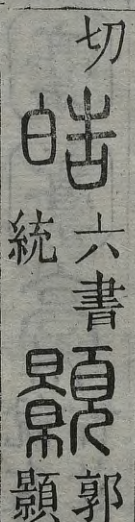 切
皓
六書
統
顥
郭
顥